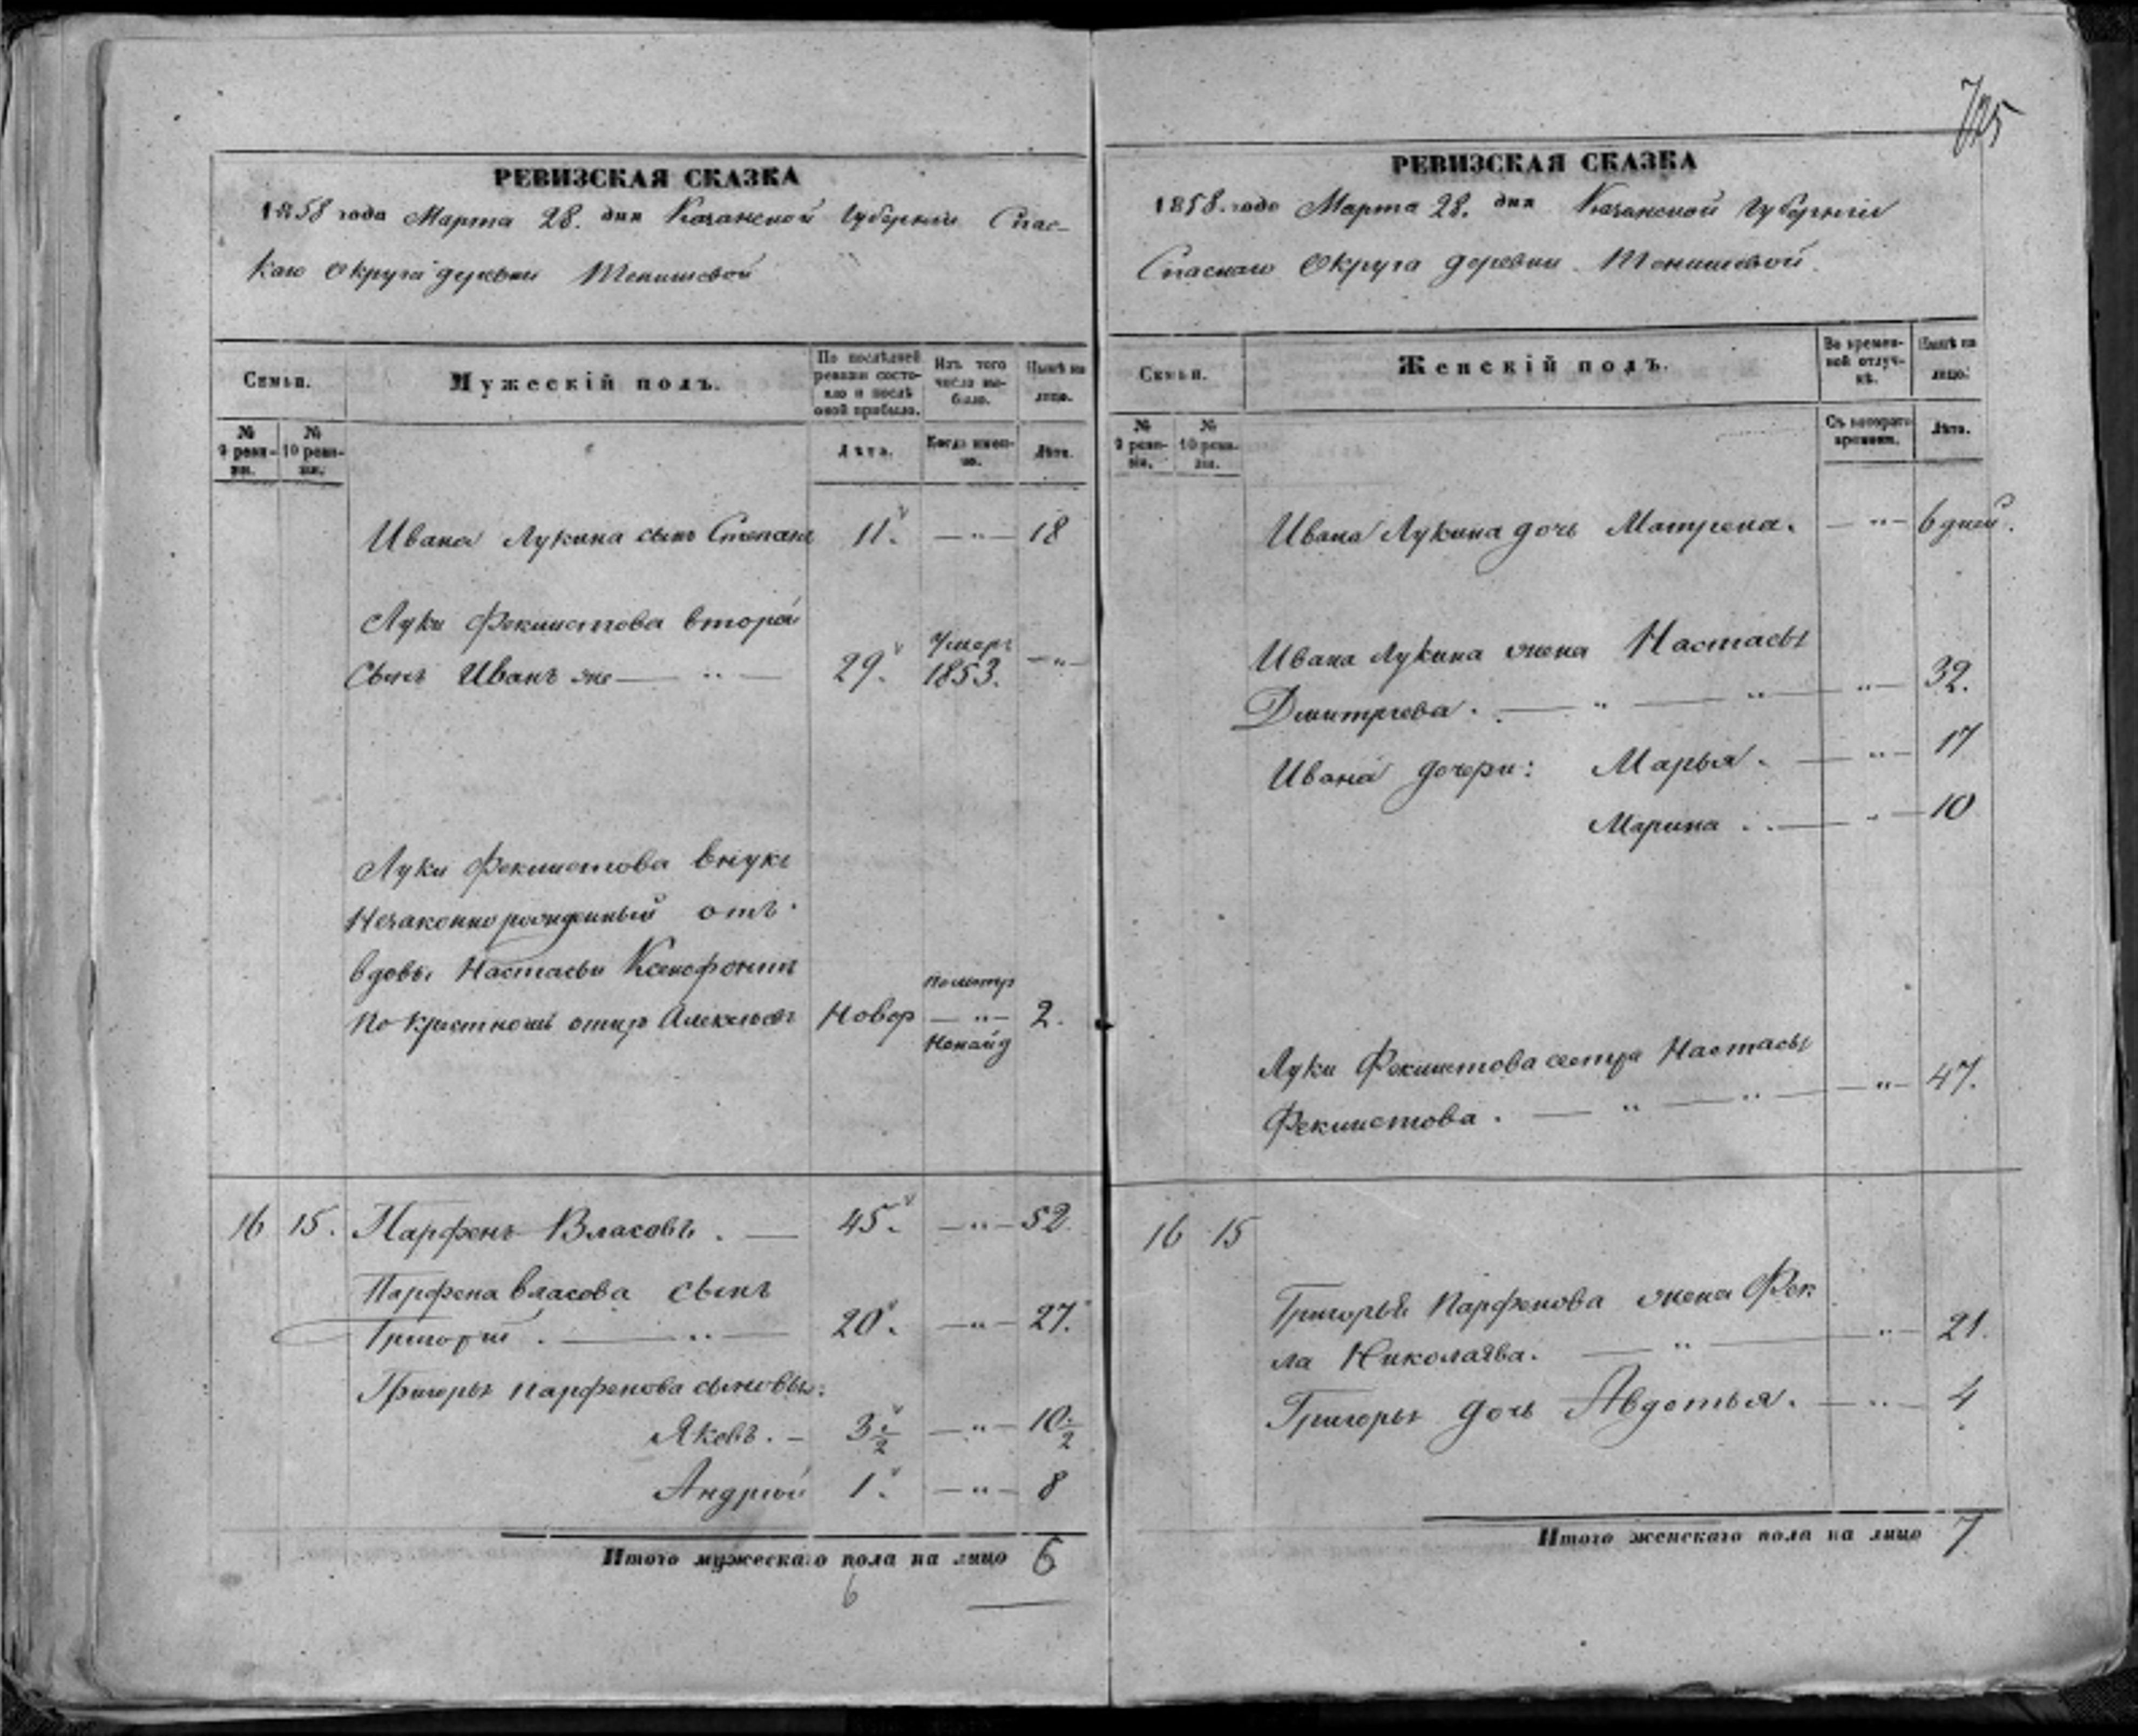 725
РЕВИЗСКАЯ СКАЗКА
1858 года Марта 28. дня Казанской Губернiи Спас-
каго Округа деревни Тенишевой
Семьи.
Мужескiй полъ.
По послѣдней ревизiи состояло и послѣ оной прибыло.
Изъ того числа выбыло.
Нынѣ на лицо.
№ 9 ревизiи.
№ 10 ревизiи.
Лѣта.
Когда именно.
Лѣта.
Ивана Лукина сынъ Степанъ 11. — " — 18
Луки Феклистова вторай
Сынъ Иванъ же — " — 29. Умеръ 1853. — " —
Луки Феклистова внукъ
Незаконно рожденный отъ
вдовы Настасьи Ксенофонтъ
по крестному отцу Алексѣевъ Новор — " — 2.
16 15. Парфенъ Власовъ. — 45. — " — 52
Парфена Власова сынъ
Григорiй. — " — 20. — " — 27.
Григорья Парфенова сыновья:
Яковъ. — 3 1/2 — " — 10 1/2
Андрей 1. — " — 8
Итого мужескаго пола на лицо 6
6
РЕВИЗСКАЯ СКАЗКА
1858. года Марта 28. дня Казанской Губернiи
Спаскаго Округа деревни Тенишевой.
Семьи.
Женскiй полъ.
Во временной отлучкѣ.
Нынѣ на лицо.
№ 9 ревизiи.
№ 10 ревизiи.
Съ котораго времени.
Лѣта.
Ивана Лукина дочь Матрена. — " — 6 дней.
Ивана Лукина жена Настасья
Дмитрiева. — " — " — " — 32.
Ивана дочери: Марья. — " — 17
Марина . . — " — 10
Луки Феклистова сестра Настасья
Феклистова. — " — " — " — 47.
16 15
Григорья Парфенова жена Фек
ла Николаява. — " — " — 21.
Григорья дочь Авдотья. — " — 4
Итого женскаго пола на лицо 7